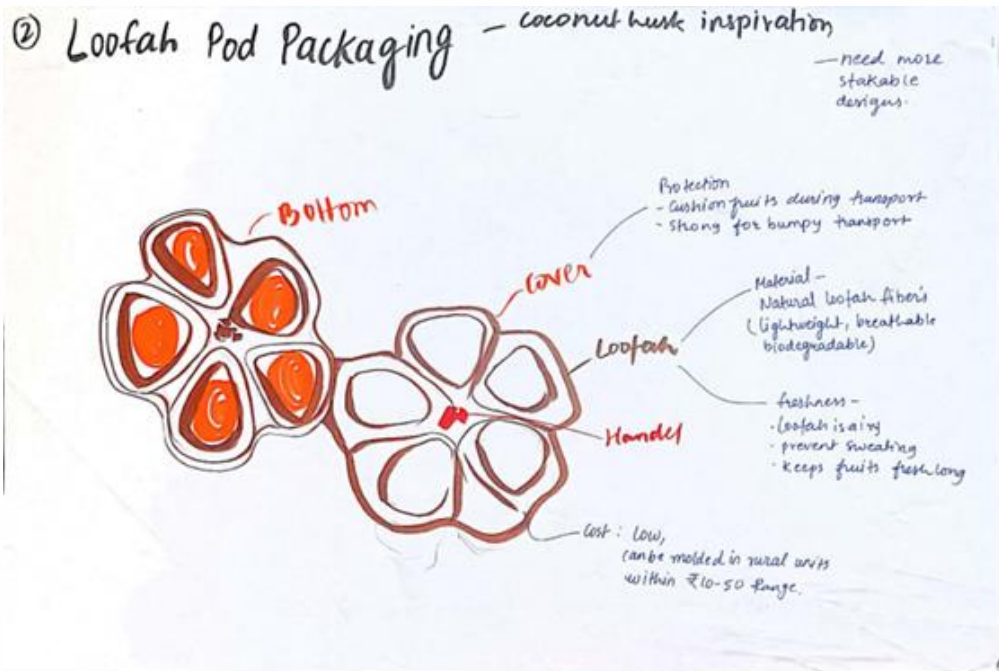 ② Loofah Pod Packaging – coconut husk inspiration
– need more
stakable
designs.
Bottom
Protection
- Cushion fruits during transport
- Strong for bumpy transport
Cover
Material –
Natural loofah fibers
(lightweight, breathable
biodegradable)
Loofah
freshness –
· Loofah is airy
· prevent sweating
· keeps fruits fresh long
Handel
Cost : Low,
can be molded in rural units
within ₹10-50 Range.